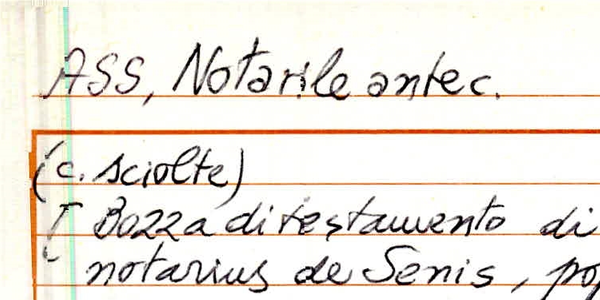 ASS, Notarile antec.
(c. sciolte)
[ Bozza di testamento di
notarius de Senis, pop